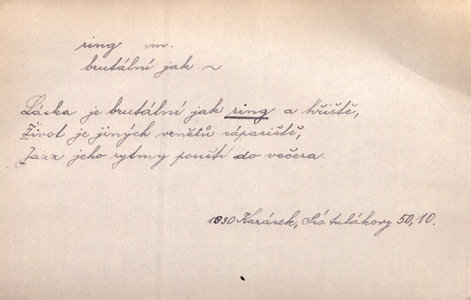 ring m.
brutální jak ~
Láska je brutální jak ring a hřiště,
Život je jiných vznětů zápasiště,
Jazz jeho rytmy pouští do večera.
1930 Karásek, Pís. tulákovy 50,10.